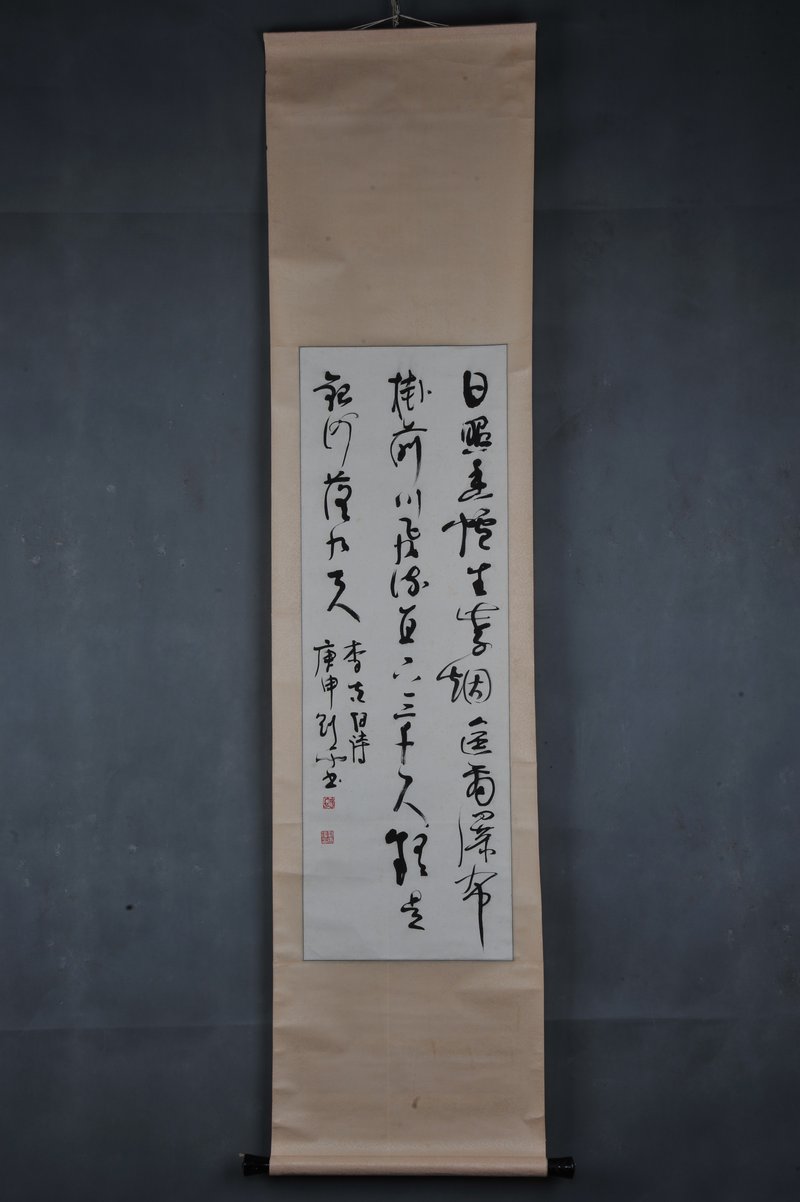 日照香爐生紫烟遥看瀑布
掛前川飛流直下三千尺疑是
銀河落九天
李太白詩
庚申 書